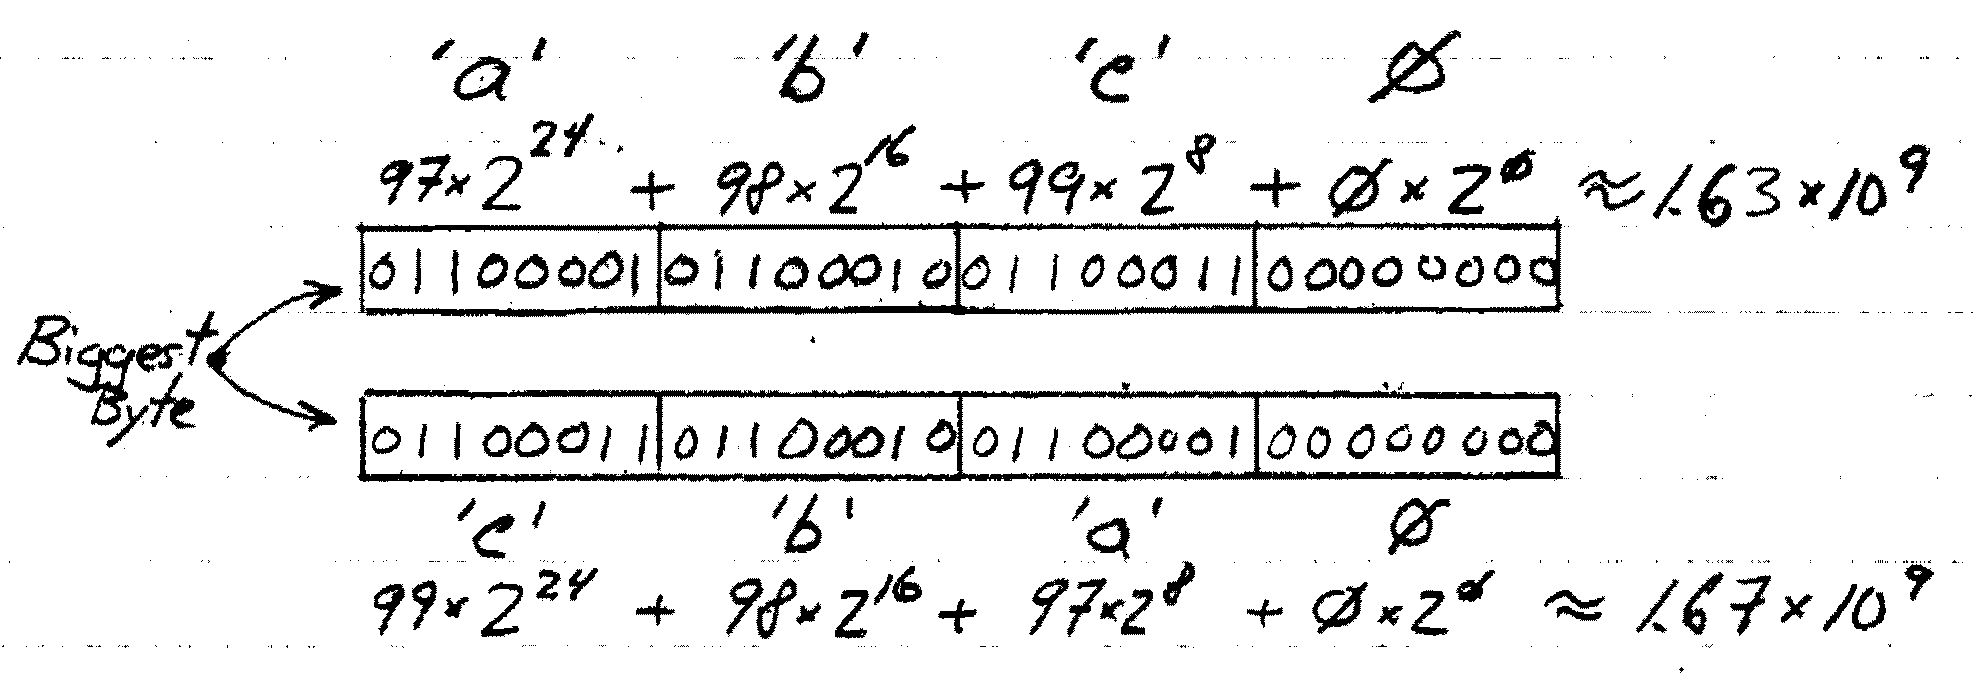 'a' 'b' 'c' Ø
97×2²⁴ + 98×2¹⁶ + 99×2⁸ + Ø×2^Ø ≈ 1.63×10⁹
01100001 01100010 01100011 00000000
Biggest
Byte
01100011 01100010 01100001 00000000
'c' 'b' 'a' Ø
99×2²⁴ + 98×2¹⁶ + 97×2⁸ + Ø×2^Ø ≈ 1.67×10⁹